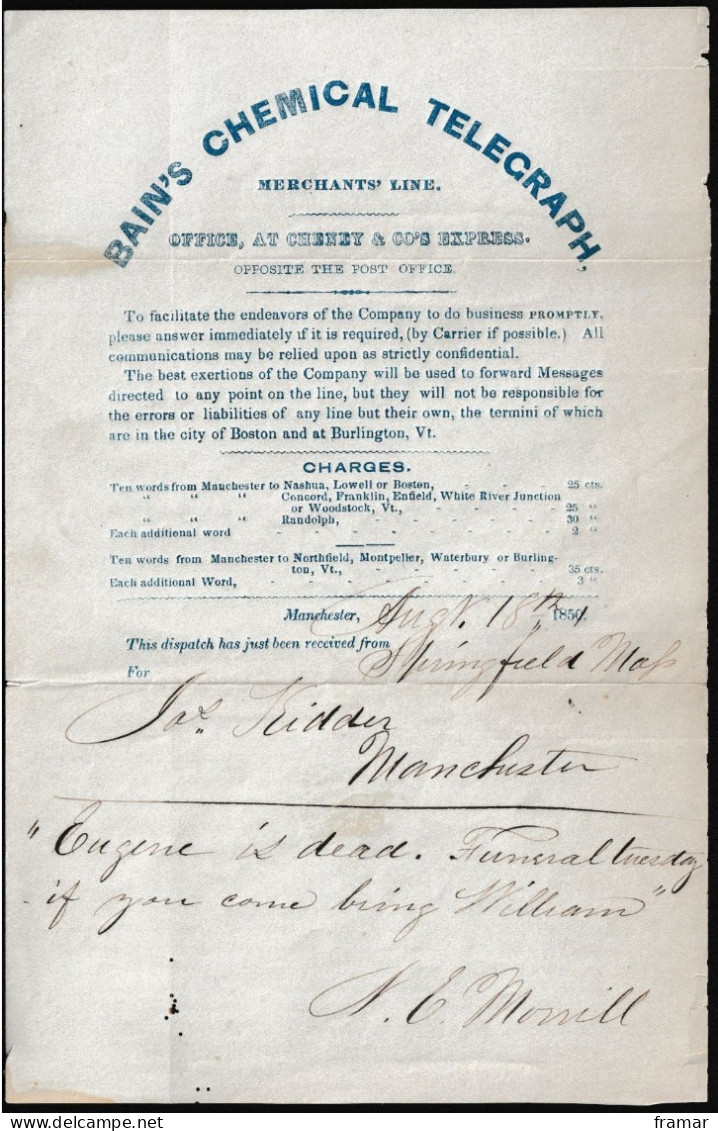 BAIN'S CHEMICAL TELEGRAPH,
MERCHANTS' LINE.
OFFICE, AT CHENEY & CO'S EXPRESS.
OPPOSITE THE POST OFFICE.
To facilitate the endeavors of the Company to do business PROMPTLY,
please answer immediately if it is required, (by Carrier if possible.) All
communications may be relied upon as strictly confidential.
The best exertions of the Company will be used to forward Messages
directed to any point on the line, but they will not be responsible for
the errors or liabilities of any line but their own, the termini of which
are in the city of Boston and at Burlington, Vt.
CHARGES.
Ten words from Manchester to Nashua, Lowell or Boston, - - - - 25 cts.
" " " Concord, Franklin, Enfield, White River Junction
or Woodstock, Vt., - - - - - - 25 "
" " " Randolph, - - - - - - - - 30 "
Each additional word - - - - - - - - - - 2 "
Ten words from Manchester to Northfield, Montpelier, Waterbury or Burling-
ton, Vt., - - - - - - - - 35 cts.
Each additional Word, - - - - - - - - - - 3 "
Manchester, Augt. 18th 1850.
This dispatch has just been received from Springfield Mass
For
Jas. Kidder
Manchester
"Eugene is dead. Funeral tuesday
if you come bring William"
N. E. Morrill
delcampe.net
framar